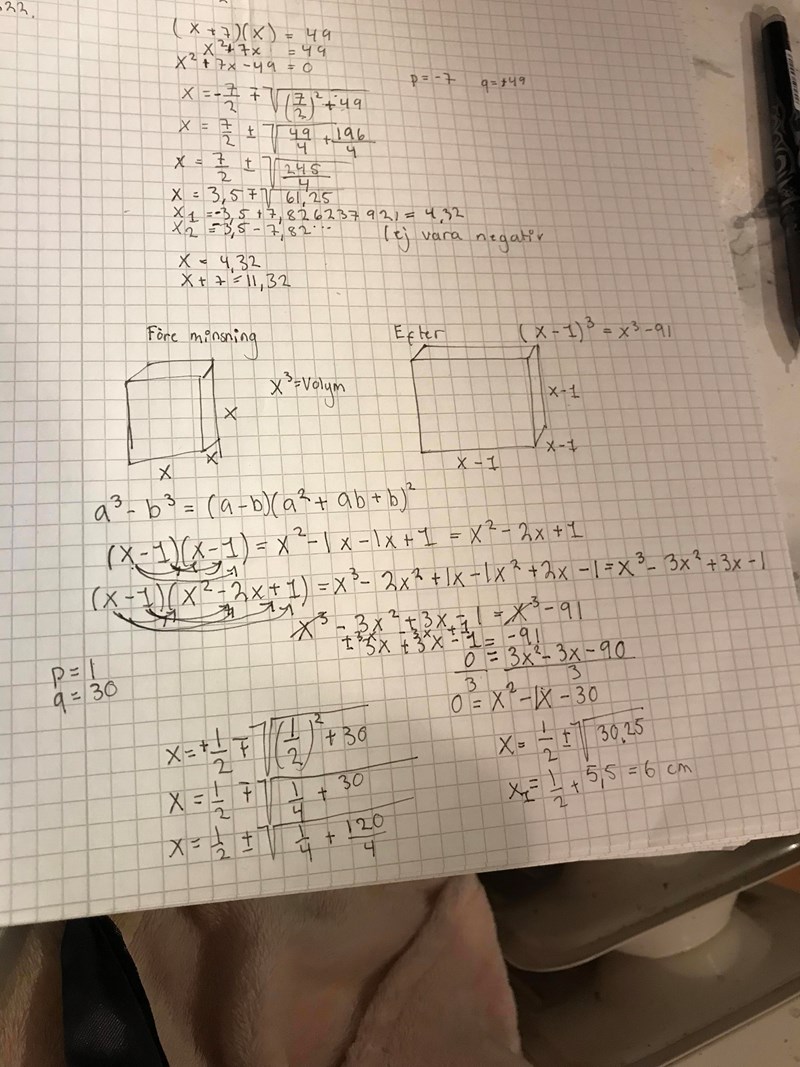 322.
(x+7)(x) = 49
x²+7x = 49
x²+7x-49 = 0
p = -7 q = +49
x = -7/2 ∓ √((7/2)² + 49)
x = 7/2 ± √(49/4 + 196/4)
x = 7/2 ± √(245/4)
x = 3,5 ∓ √61,25
x₁ = -3,5 + 7,826237921 = 4,32
x₂ = -3,5 - 7,82... (ej vara negativ
x = 4,32
x + 7 = 11,32
Före minsning
Efter (x-1)³ = x³-91
x³=Volym
x
x
x
x-1
x-1
x-1
a³-b³ = (a-b)(a²+ab+b)²
(x-1)(x-1) = x²-1x-1x+1 = x²-2x+1
(x-1)(x²-2x+1) = x³-2x²+1x-1x²+2x-1 = x³-3x²+3x-1
x³-3x²+3x-1 = x³-91
0/3 = (3x²-3x-90)/3
p = 1
q = 30
0 = x²-1x-30
x = +1/2 ∓ √((1/2)² + 30)
x = 1/2 ∓ √(1/4 + 30)
x = 1/2 ± √(1/4 + 120/4)
x = 1/2 ± √30,25
x₁ = 1/2 + 5,5 = 6 cm